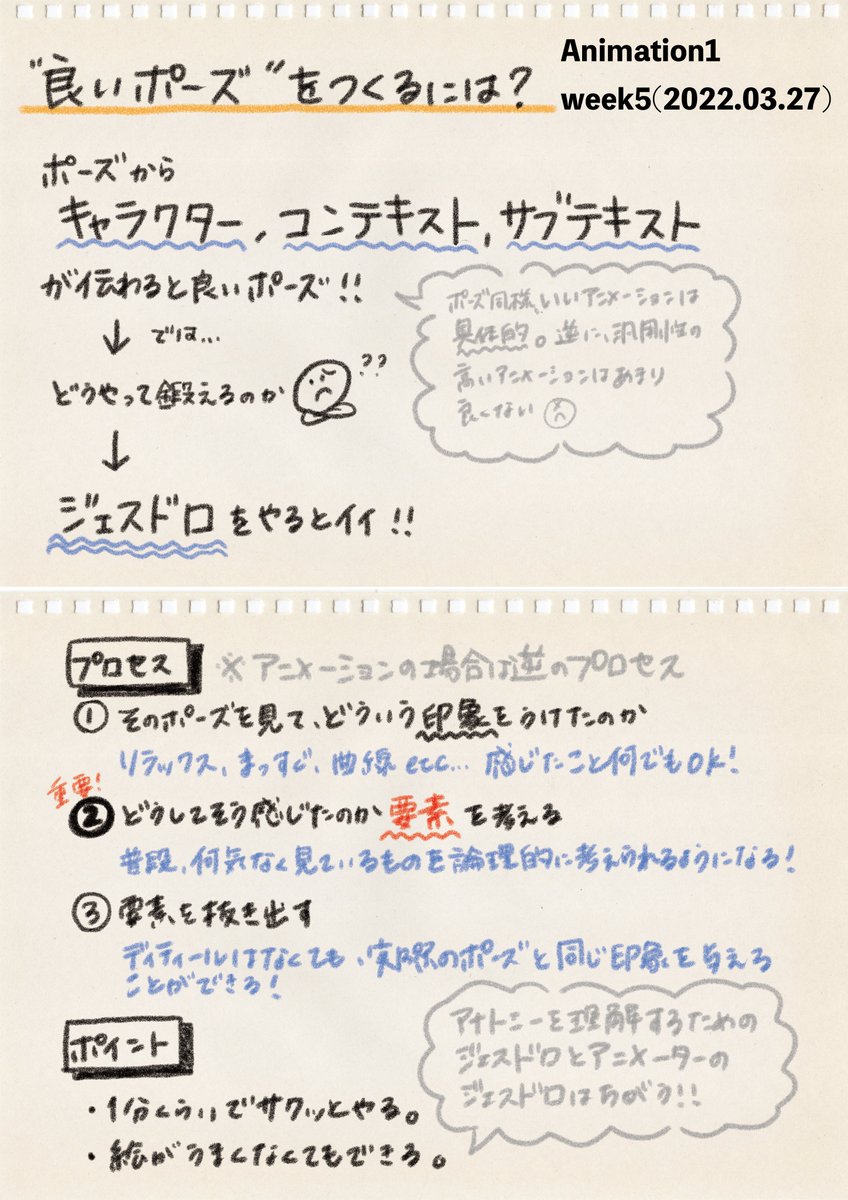 "良いポーズ"をつくるには?
Animation1
week5(2022.03.27)
ポーズから
キャラクター, コンテキスト, サブテキスト
が伝わると良いポーズ!!
↓ では...
どうやって鍛えるのか ??
↓
ジェスドロをやるとイイ!!
ポーズ同様、いいアニメーションは
具体的。逆に、汎用性の
高いアニメーションはあまり
良くない
プロセス ※アニメーションの場合は逆のプロセス
① そのポーズを見て、どういう印象をうけたのか
リラックス、まっすぐ、曲線 etc... 感じたこと何でもOK!
重要!
② どうしてそう感じたのか要素を考える
普段、何気なく見ているものを論理的に考えられるようになる!
③ 要素を抜き出す
ディティールはなくても、実際のポーズと同じ印象を与える
ことができる!
アナトミーを理解するための
ジェスドロとアニメーターの
ジェスドロはちがう!!
ポイント
・1分くらいでサクッとやる。
・絵がうまくなくてもできる。